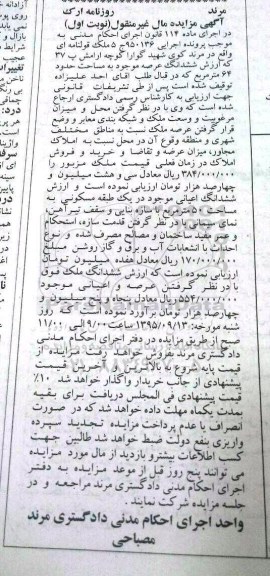 مرند روزنامه ارک
آگهی مزایده مال غیرمنقول(نوبت اول)
در اجرای ماده ۱۱۴ قانون اجرای احکام مدنی به
موجب پرونده اجرایی ۹۵۰۱۳۶ج ۵ ملک قولنامه ای
واقع در مرند کوی شهید گوارا کوچه ارامش پ ۳۷
که ارزش ششدانگ عرصه به مساحت حدود
۶۴ مترمربع که در قبال طلب آقای احد علیزاده
توقیف شده است پس از طی تشریفات قانونی
جهت ارزیابی به کارشناس رسمی دادگستری ارجاع
شده است که وی با در نظر گرفتن محل و میزان
واگذاری و وسعت ملک و شبکه بندی معابر و وضع
قرار گرفتن عرصه ملک نسبت به مناطق مختلف
شهری و منطقه وقوع آن در محل نسبت به املاک
مجاور میزان عرضه و تقاضا و خرید و فروش
املاک در زمان فعلی قیمت ملک مزبور را
۳۸۴/۰۰۰/۰۰۰ ریال معادل سی و هشت میلیون و
چهارصد هزار تومان ارزیابی نموده است و ارزش
ششدانگ اعیانی موجود در یک طبقه مسکونی به
مساحت مترمربع با سازه بنایی و سقف تیرآهن،
نمای سیمان با در نظر گرفتن قدمت سازه، استحکام
و درصد ساختمان و مصالح مصرف شده و نوع
احداث با انشعابات آب و برق و گاز روشن مبلغ
۱۷۰/۰۰۰/۰۰۰ ریال معادل هفده میلیون تومان
ارزیابی نموده است که ارزش ششدانگ ملک فوق
با در نظر گرفتن عرصه و اعیانی موجود
۵۵۴/۰۰۰/۰۰۰ ریال معادل پنجاه و پنج میلیون و
چهارصد هزار تومان برآورد نموده است که روز
شنبه مورخه: ۱۳۹۵/۰۹/۱۳ ساعت ۹/۰۰ الی ۱۱/۰۰
صبح از طریق مزایده در دفتر اجرای احکام مدنی
دادگستری مرند بفروش خواهد رفت مزایده از
قیمت پایه شروع به بالاترین و آخرین قیمت
پیشنهادی از جانب خریدار واگذار خواهد شد ۱۰٪
قیمت پیشنهادی فی المجلس دریافت برای بقیه
بمدت یکماه مهلت داده خواهد شد که در صورت
انصراف یا عدم پرداخت مزایده تجدید سپرده
واریزی بنفع دولت ضبط خواهد شد طالبین جهت
کسب اطلاعات بیشتر و بازدید از مال مورد مزایده
می توانند پنج روز قبل از موعد مزایده به دفتر
اجرای احکام مدنی دادگستری مرند مراجعه و در
جلسه مزایده شرکت نمایند.
واحد اجرای احکام مدنی دادگستری مرند
مصباحی